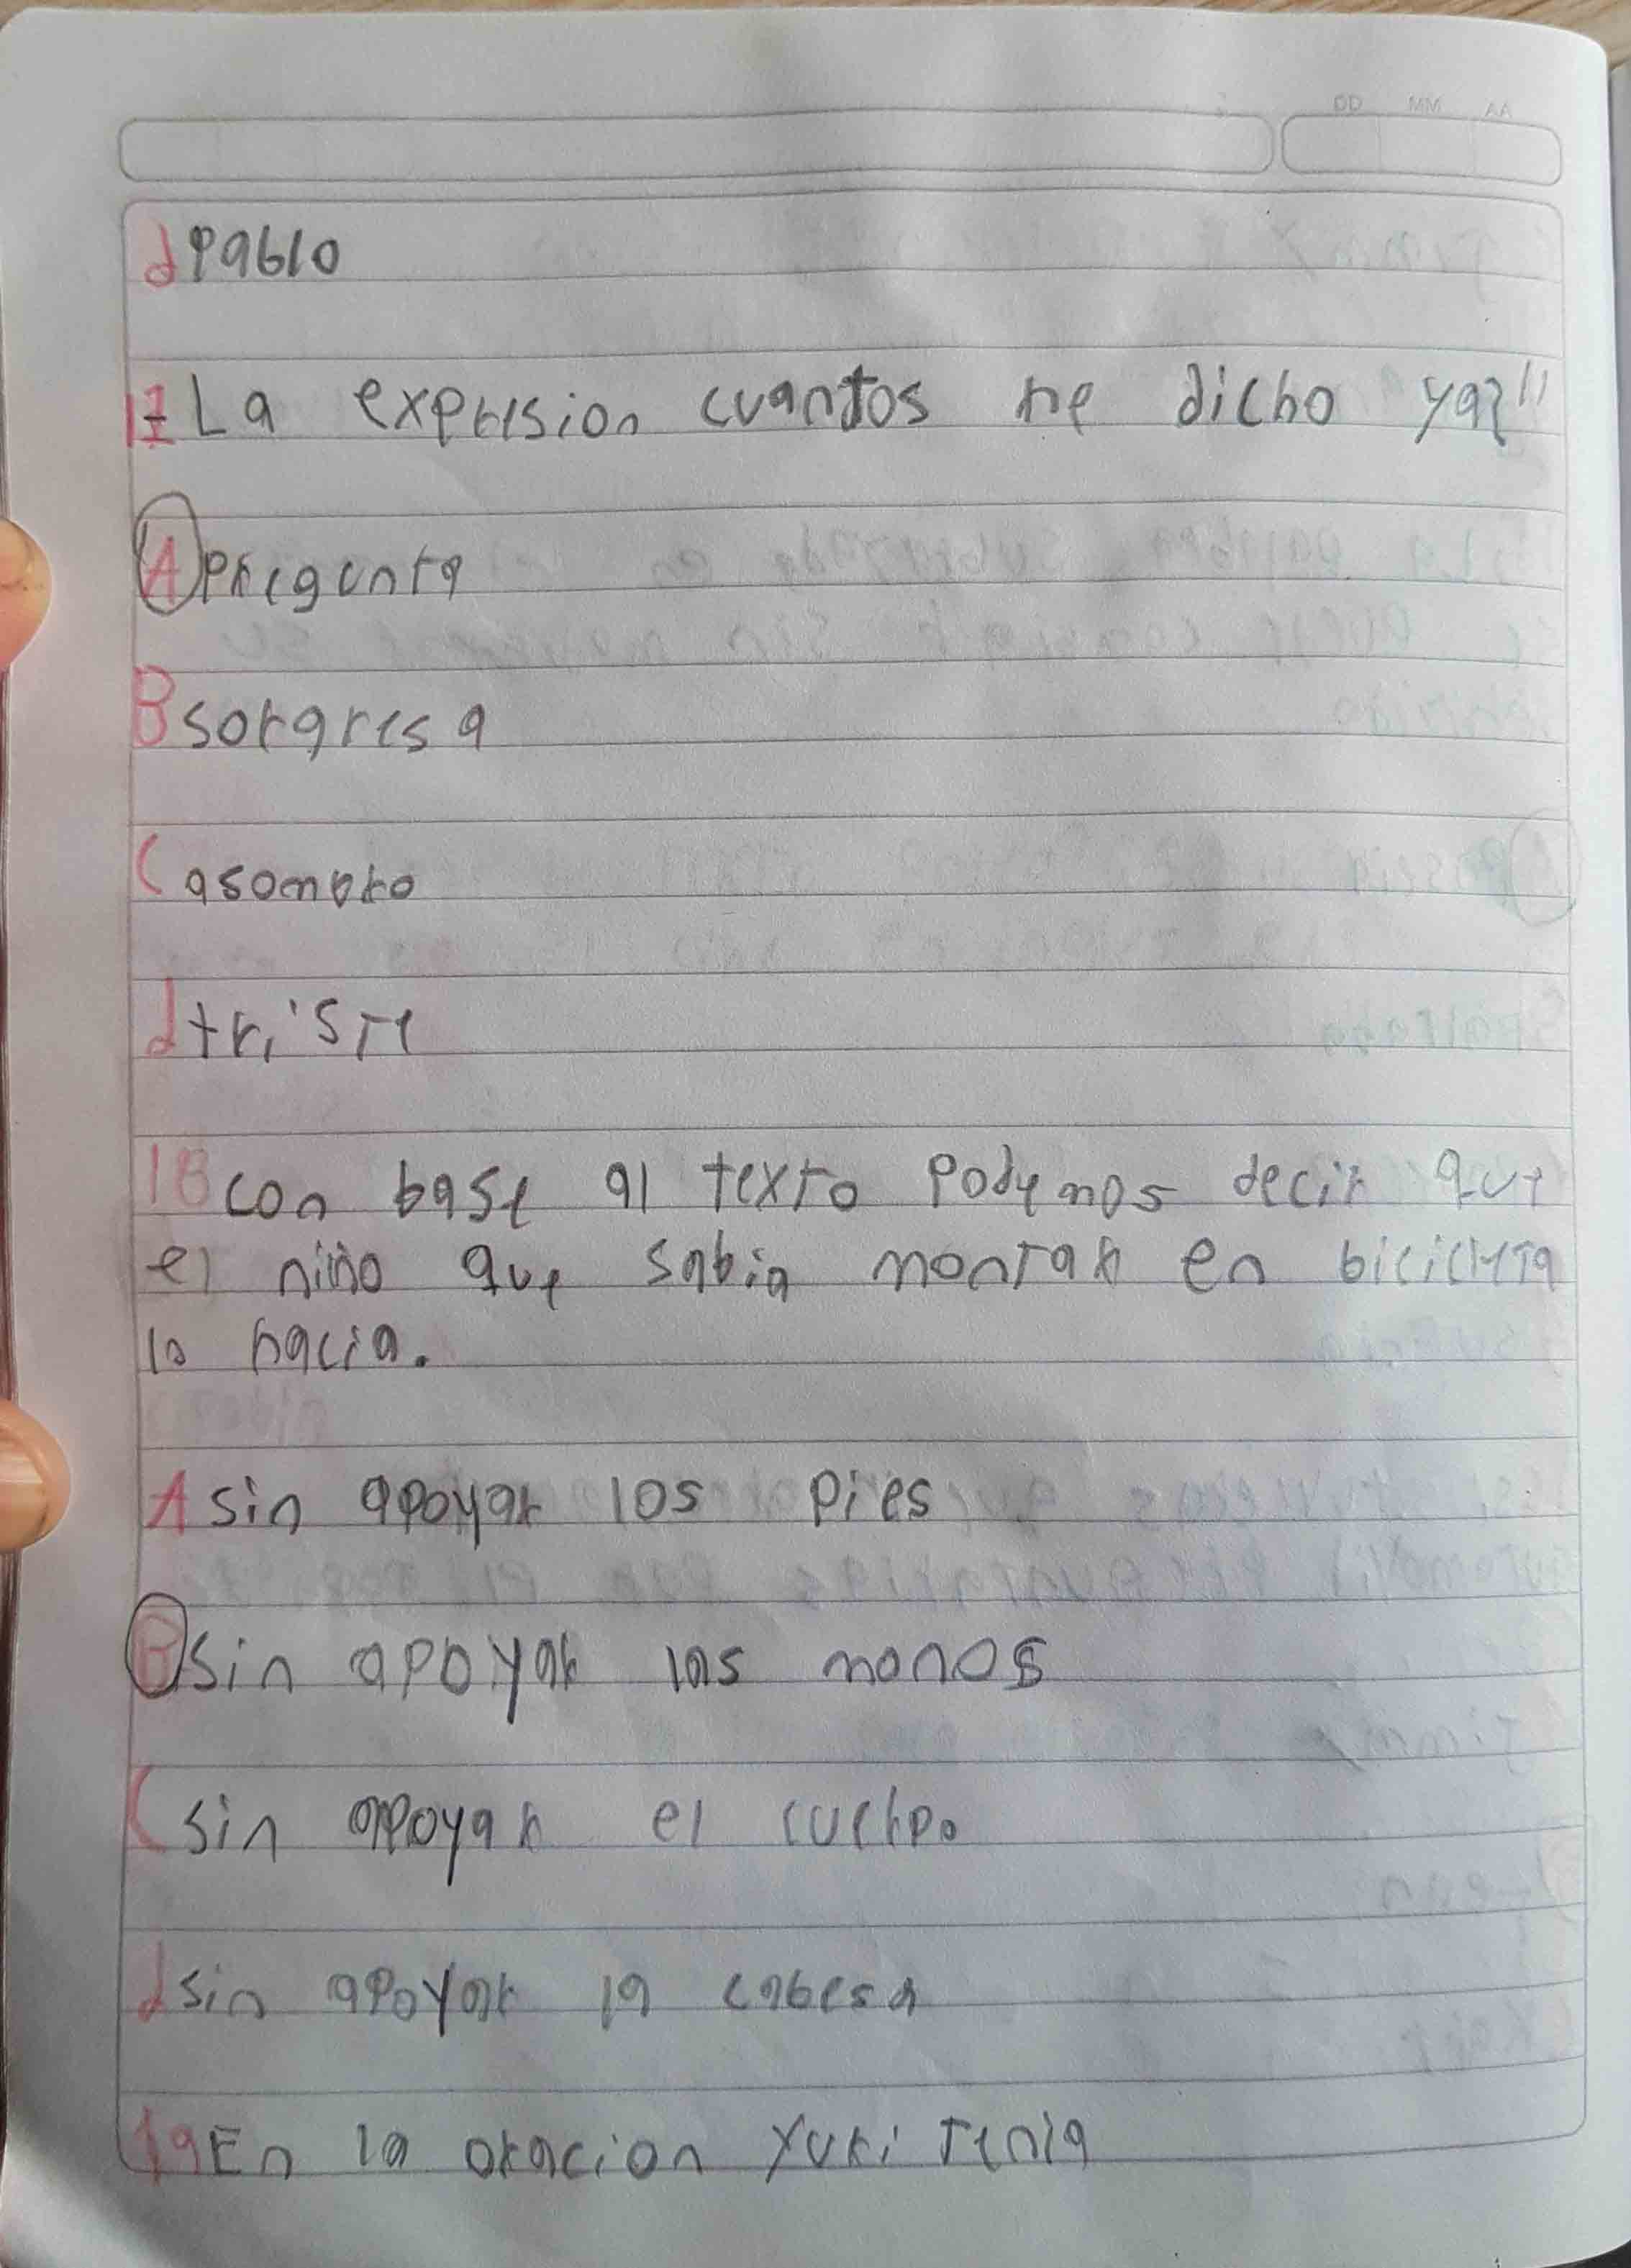 DD MM AA
d Pablo
17 La expresion cuantos he dicho ya?"
A Pregunta
B sorgresa
C asombro
d triste
18 con base al texto podemos decir que
el niño que sabia montar en bicicleta
lo hacia.
A sin apoyar los pies
B sin apoyar las manos
C sin apoyar el cuerpo
d sin apoyar la cabesa
19 En la oracion Yuki Tenia